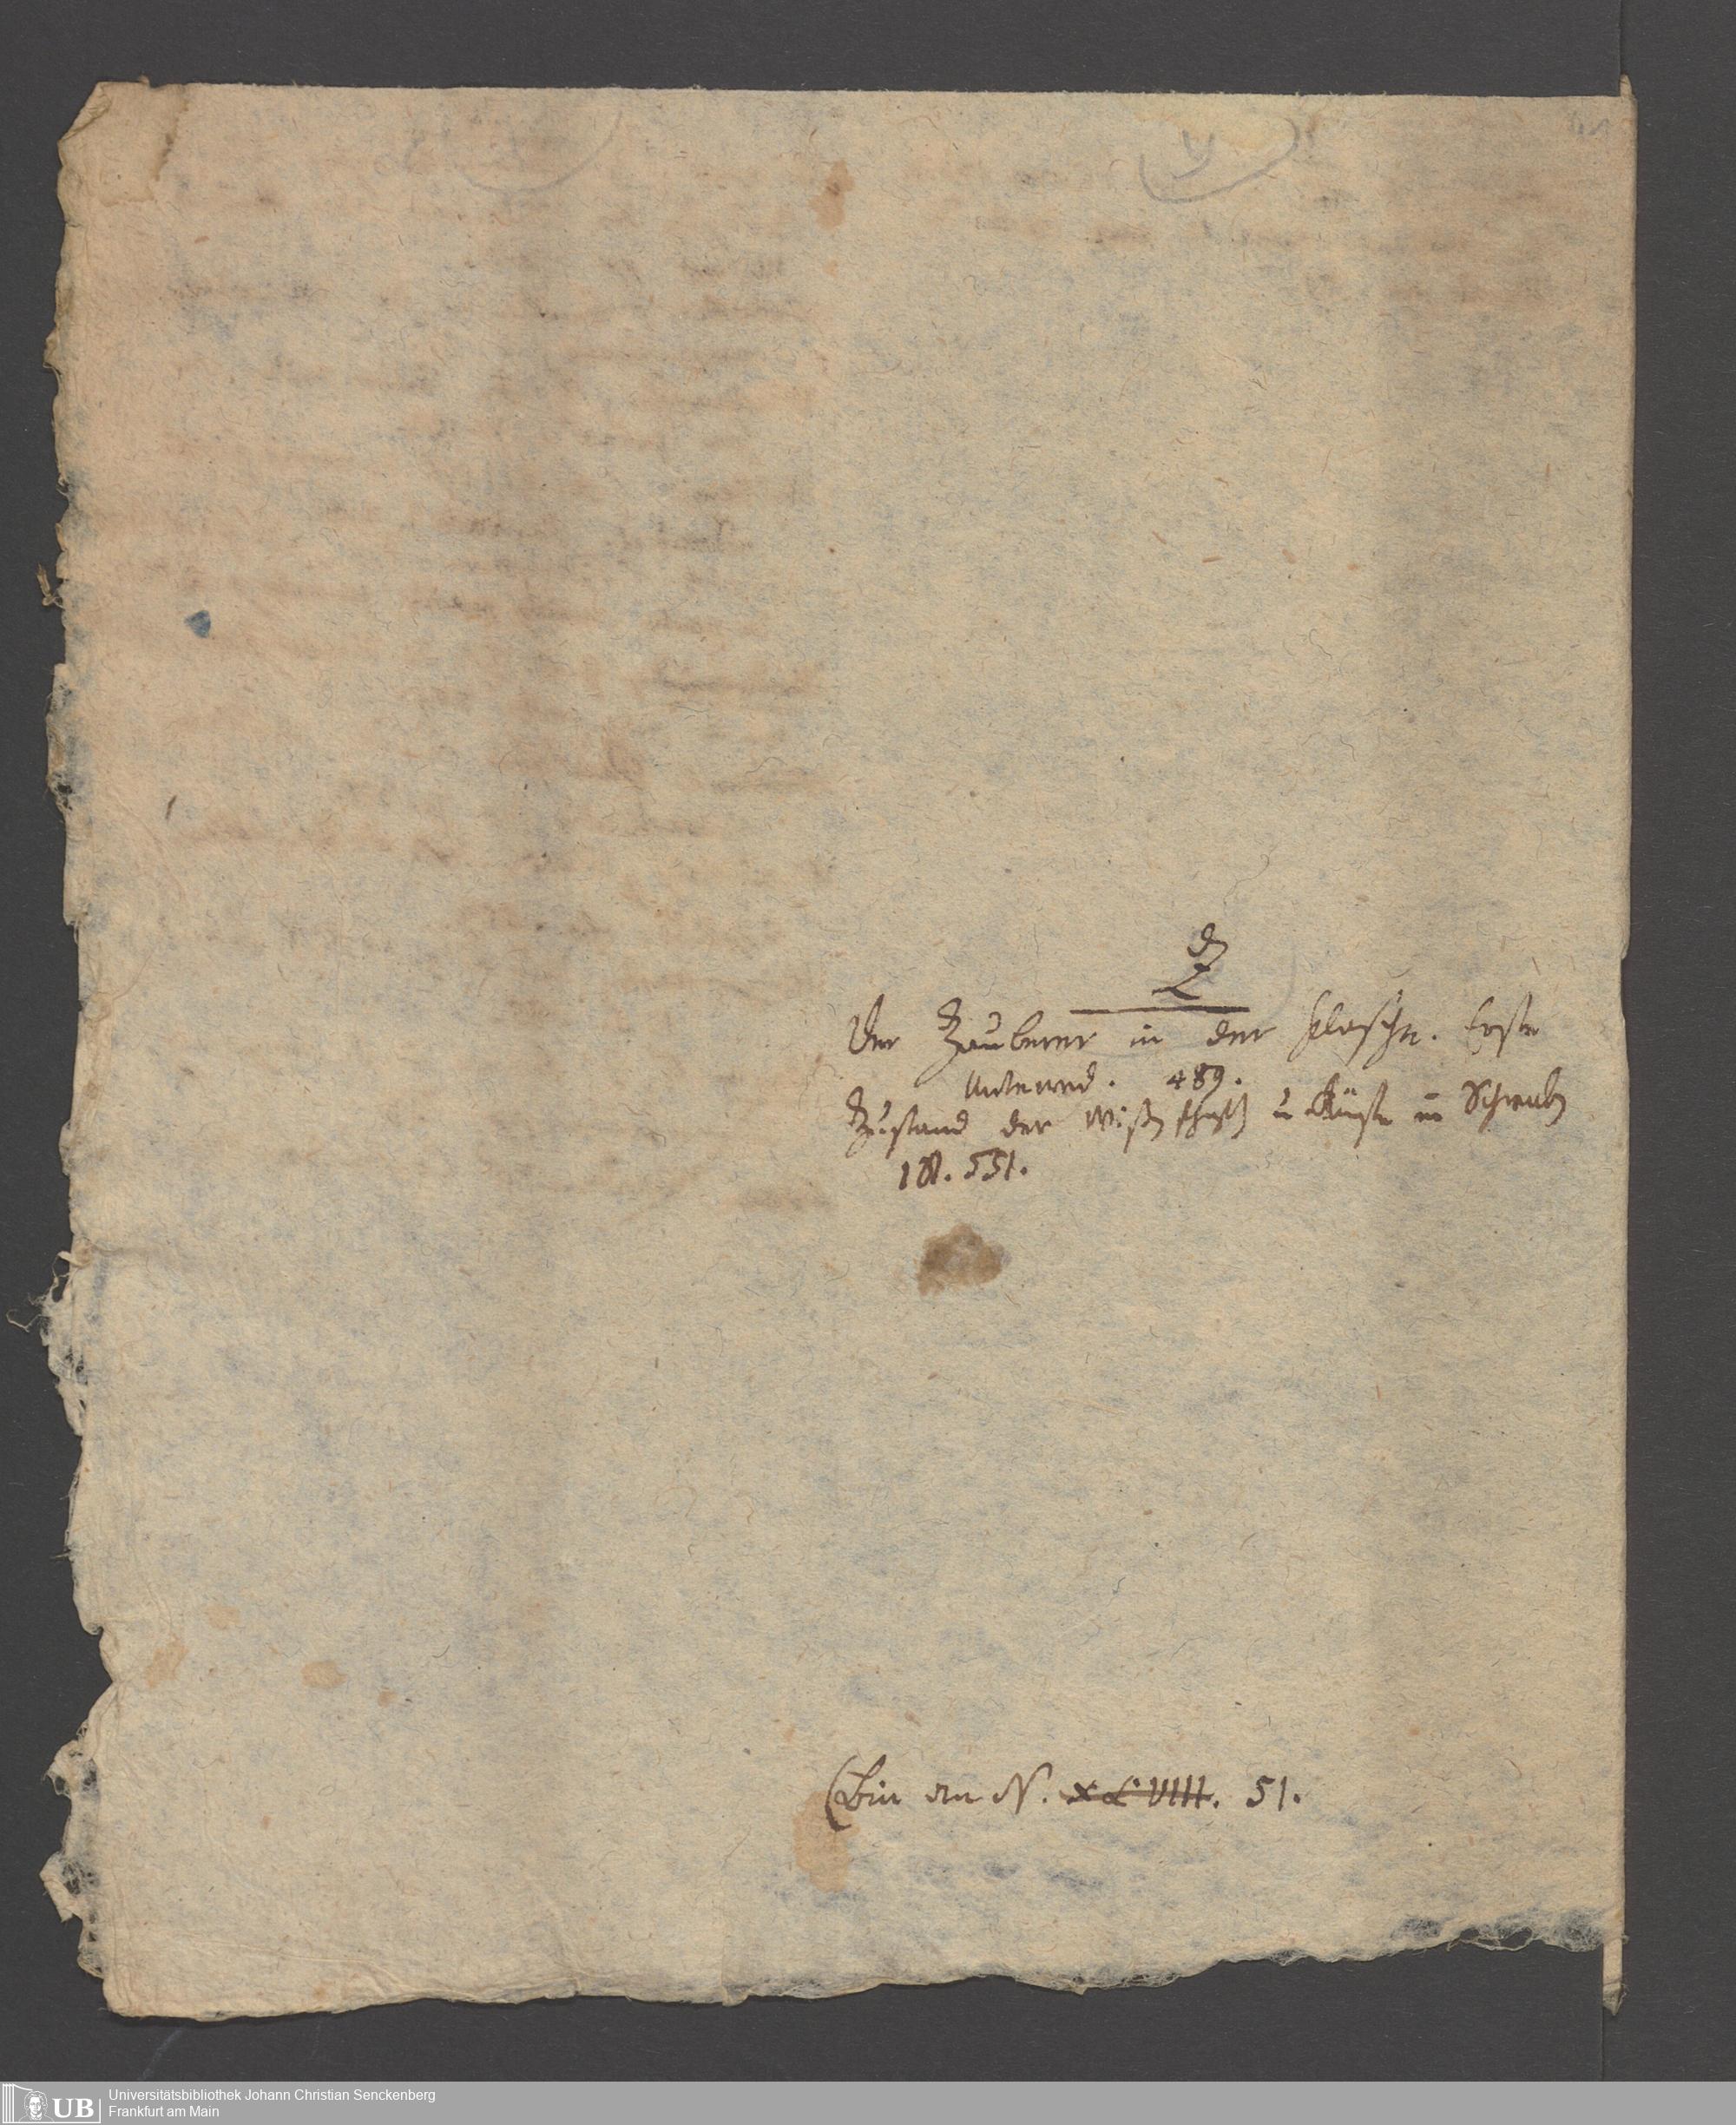 Z
Der Zauberer in der Flasche. Erste
Unterred. 489.
Zustand der Wißenschaften u Künste in Schwaben
181. 551.
(Bin an N. XLVIII. 51.
Universitätsbibliothek Johann Christian Senckenberg
UB
Frankfurt am Main